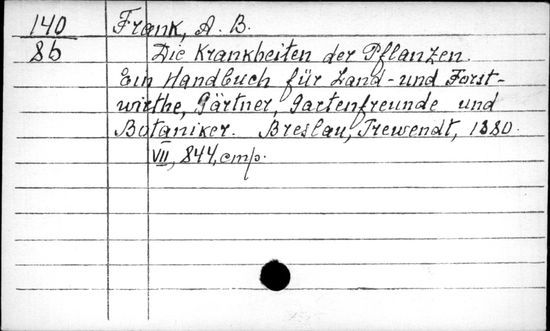 140 Frank, A. B.
8б Die Krankheiten der Pflanzen.
Ein Handbuch für Land- und Forst-
wirthe, Gärtner, Gartenfreunde und
Botaniker. Breslau, Trewendt, 1880.
VII, 844, стр.